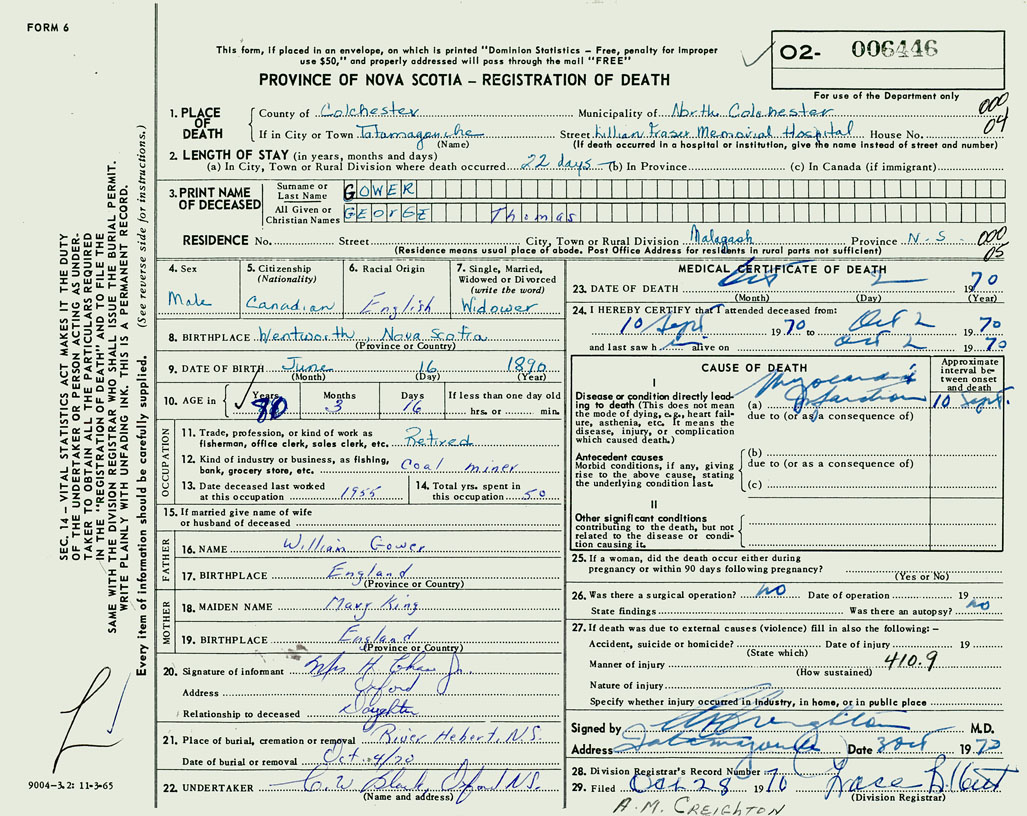 FORM 6
This form, if placed in an envelope, on which is printed "Dominion Statistics – Free, penalty for improper
use $50," and properly addressed will pass through the mail "FREE"
PROVINCE OF NOVA SCOTIA – REGISTRATION OF DEATH
O2- 006446
For use of the Department only
000
04
1. PLACE OF DEATH
County of Colchester Municipality of North Colchester
If in City or Town Tatamagouche Street Lillian Fraser Memorial Hospital House No.
(Name) (If death occurred in a hospital or institution, give the name instead of street and number)
2. LENGTH OF STAY (in years, months and days)
(a) In City, Town or Rural Division where death occurred 22 days (b) In Province (c) In Canada (if immigrant)
3. PRINT NAME OF DECEASED
Surname or Last Name GOWER
All Given or Christian Names GEORGE Thomas
RESIDENCE No. Street City, Town or Rural Division Malagash Province N.S. 000
05
(Residence means usual place of abode. Post Office Address for residents in rural parts not sufficient)
4. Sex
Male
5. Citizenship
(Nationality)
Canadian
6. Racial Origin
English
7. Single, Married,
Widowed or Divorced
(write the word)
Widower
8. BIRTHPLACE Wentworth, Nova Scotia
(Province or Country)
9. DATE OF BIRTH June 16 1890
(Month) (Day) (Year)
10. AGE in
Years
80
Months
3
Days
16
If less than one day old
hrs. or min.
OCCUPATION
11. Trade, profession, or kind of work as
fisherman, office clerk, sales clerk, etc. Retired
12. Kind of industry or business, as fishing,
bank, grocery store, etc. Coal miner
13. Date deceased last worked
at this occupation 1955
14. Total yrs. spent in
this occupation 50
15. If married give name of wife
or husband of deceased
FATHER
16. NAME William Gower
17. BIRTHPLACE England
(Province or Country)
MOTHER
18. MAIDEN NAME Mary King
19. BIRTHPLACE England
(Province or Country)
20. Signature of informant Mrs H. Jr.
Address Oxford
Relationship to deceased Daughter
21. Place of burial, cremation or removal River Hebert, N.S.
Date of burial or removal Oct 4/70
22. UNDERTAKER C. W. Oxford N.S.
(Name and address)
MEDICAL CERTIFICATE OF DEATH
23. DATE OF DEATH Oct 2 1970
(Month) (Day) (Year)
24. I HEREBY CERTIFY that I attended deceased from:
10 Sept 1970 to Oct 2 1970
and last saw h im alive on Oct 2 1970
CAUSE OF DEATH
Approximate
interval be-
tween onset
and death
I
Disease or condition directly lead-
ing to death (This does not
mean the mode of dying, e.g., heart fail-
ure, asthenia, etc. It means the
disease, injury, or complication
which caused death.)
(a) Myocardial Infarction 10 Sept.
due to (or as a consequence of)
Antecedent causes
Morbid conditions, if any, giving
rise to the above cause, stating
the underlying condition last.
(b)
due to (or as a consequence of)
(c)
II
Other significant conditions
contributing to the death, but not
related to the disease or condi-
tion causing it.
25. If a woman, did the death occur either during
pregnancy or within 90 days following pregnancy?
(Yes or No)
26. Was there a surgical operation? no Date of operation 19
State findings Was there an autopsy? no
27. If death was due to external causes (violence) fill in also the following: –
Accident, suicide or homicide? Date of injury 19
(State which)
Manner of injury 410.9
(How sustained)
Nature of injury
Specify whether injury occurred in industry, in home, or in public place
Signed by Creighton M.D.
Address Tatamagouche Date 3 Oct 1970
28. Division Registrar's Record Number
29. Filed Oct 28 1970
(Division Registrar)
A.M. CREIGHTON
SEC. 14 – VITAL STATISTICS ACT MAKES IT THE DUTY
OF THE UNDERTAKER OR PERSON ACTING AS UNDER-
TAKER TO OBTAIN ALL THE PARTICULARS REQUIRED
IN THE "REGISTRATION OF DEATH" AND TO FILE THE
SAME WITH THE DIVISION REGISTRAR WHO SHALL ISSUE THE BURIAL PERMIT.
WRITE PLAINLY WITH UNFADING INK. THIS IS A PERMANENT RECORD.
Every item of information should be carefully supplied. (See reverse side for instructions.)
9004-3.2: 11-3-65